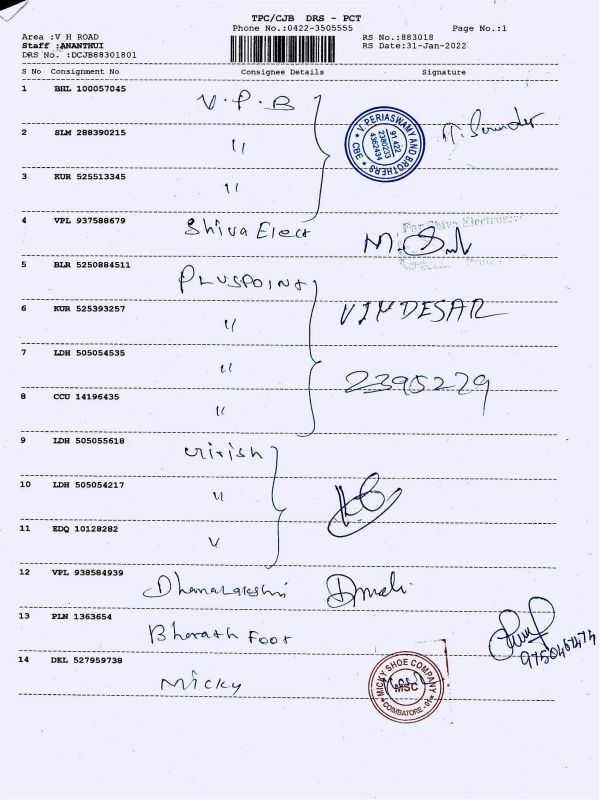 TPC/CJB DRS - PCT
Phone No.:0422-3505555 Page No.:1
Area :V H ROAD RS No.:883018
Staff :ANANTHUI RS Date:31-Jan-2022
DRS No. :DCJB88301801
S No Consignment No Consignee Details Signature
1 BHL 100057045 V.P.B
V. PERIASWAMY AND BROTHERS
CBE
2 SLM 288390215 "
3 KUR 525513345 "
4 VPL 937588679 Shiva Elect
For Shiva Electronic
5 BLR 5250884511 PLUSPOINT
6 KUR 525393257 "
7 LDH 505054535 "
2395229
8 CCU 14196435 "
9 LDH 505055618
10 LDH 505054217 "
11 EDQ 10128282 "
12 VPL 938584939 Dhanalakshmi
13 PLN 1363654 Bharath Foot
14 DEL 527959738 Micky
MICKY SHOE COMPANY
MSC
COIMBATORE - 01